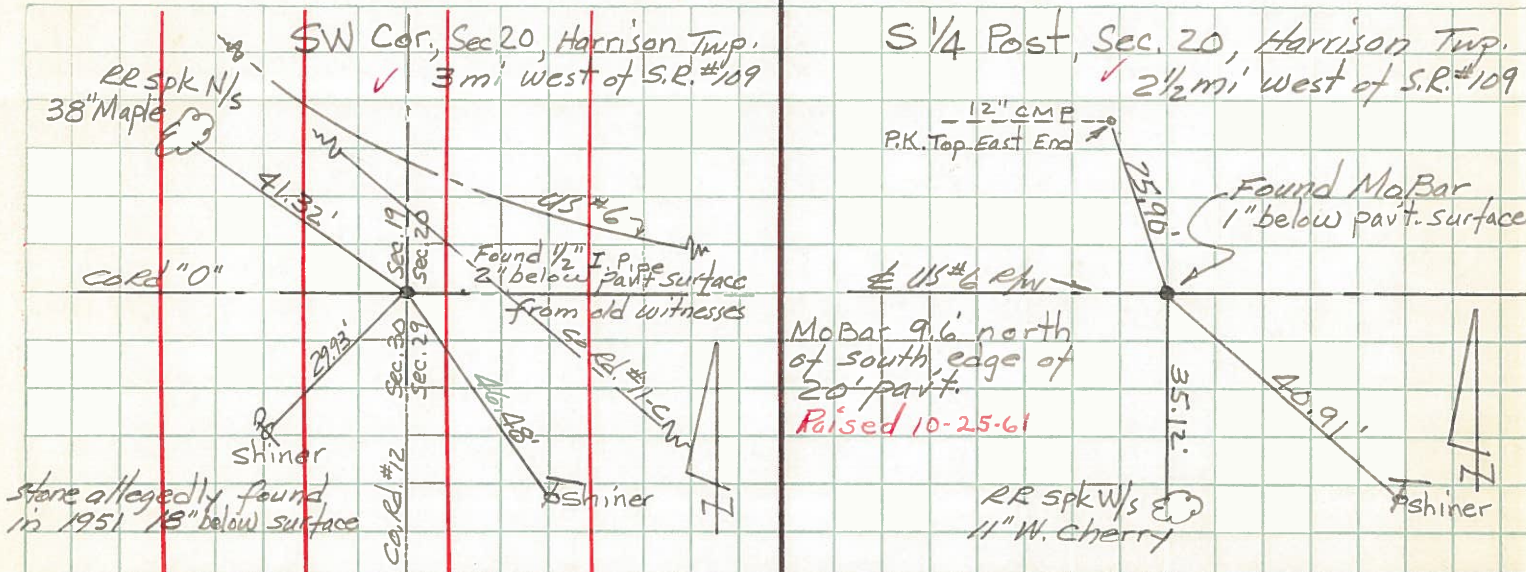 SW Cor., Sec. 20, Harrison Twp.
✓ 3 mi west of S.R. #109
RR spk N/s
38" Maple
41.32'
US #6
Sec. 19
Sec. 20
Found 1/2" I. Pipe
2" below pav't surface
from old witnesses
Co Rd "O"
29.93'
Sec. 30
Sec. 29
46.48'
Co. Rd. #11-C
shiner
shiner
stone allegedly found
in 1951 18" below surface
Co. Rd. #12
N
S 1/4 Post, Sec. 20, Harrison Twp.
✓ 2 1/2 mi west of S.R. #109
12" CMP
P.K. Top East End
25.96'
Found MoBar
1" below pav't. surface
℄ US #6 R/W
MoBar 9.6' north
of south edge of
20' pav't.
Raised 10-25-61
35.12'
40.91'
RR spk W/s
11" W. Cherry
shiner
N